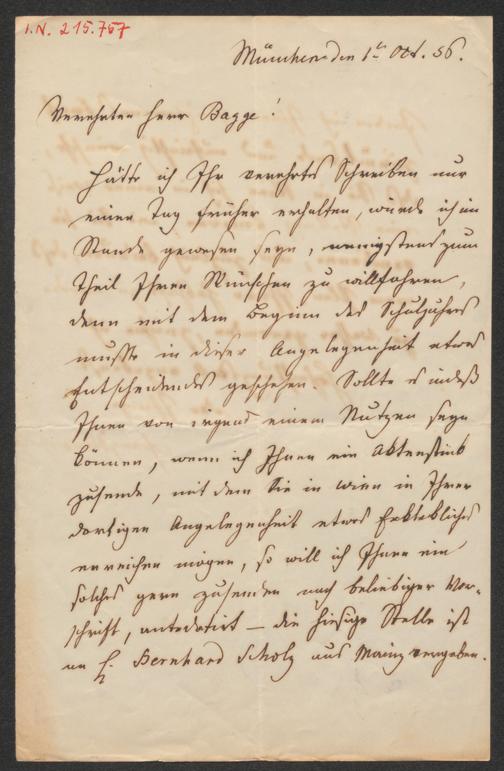 I.N. 215.757
München den 1t Oct. 56.
Verehrter Herr Bagge!
Hätte ich Ihr verehrtes Schreiben nur
einen Tag früher erhalten, würde ich im
Stande gewesen seyn, wenigstens zum
Theil Ihren Wünschen zu willfahren,
denn mit dem Beginn des Schuljahres
mußte in dieser Angelegenheit etwas
Entscheidendes geschehen. Sollte es indeß
Ihnen von irgend einem Nutzen seyn
können, wenn ich Ihnen ein Aktenstück
zusende, mit dem Sie in Wien in Ihrer
dortigen Angelegenheit etwas Erkleckliches
erreichen mögen, so will ich Ihnen ein
solches gern zusenden nach beliebiger Vor-
schrift, antedatirt — die hiesige Stelle ist
an H. Bernhard Scholz aus Mainz vergeben.